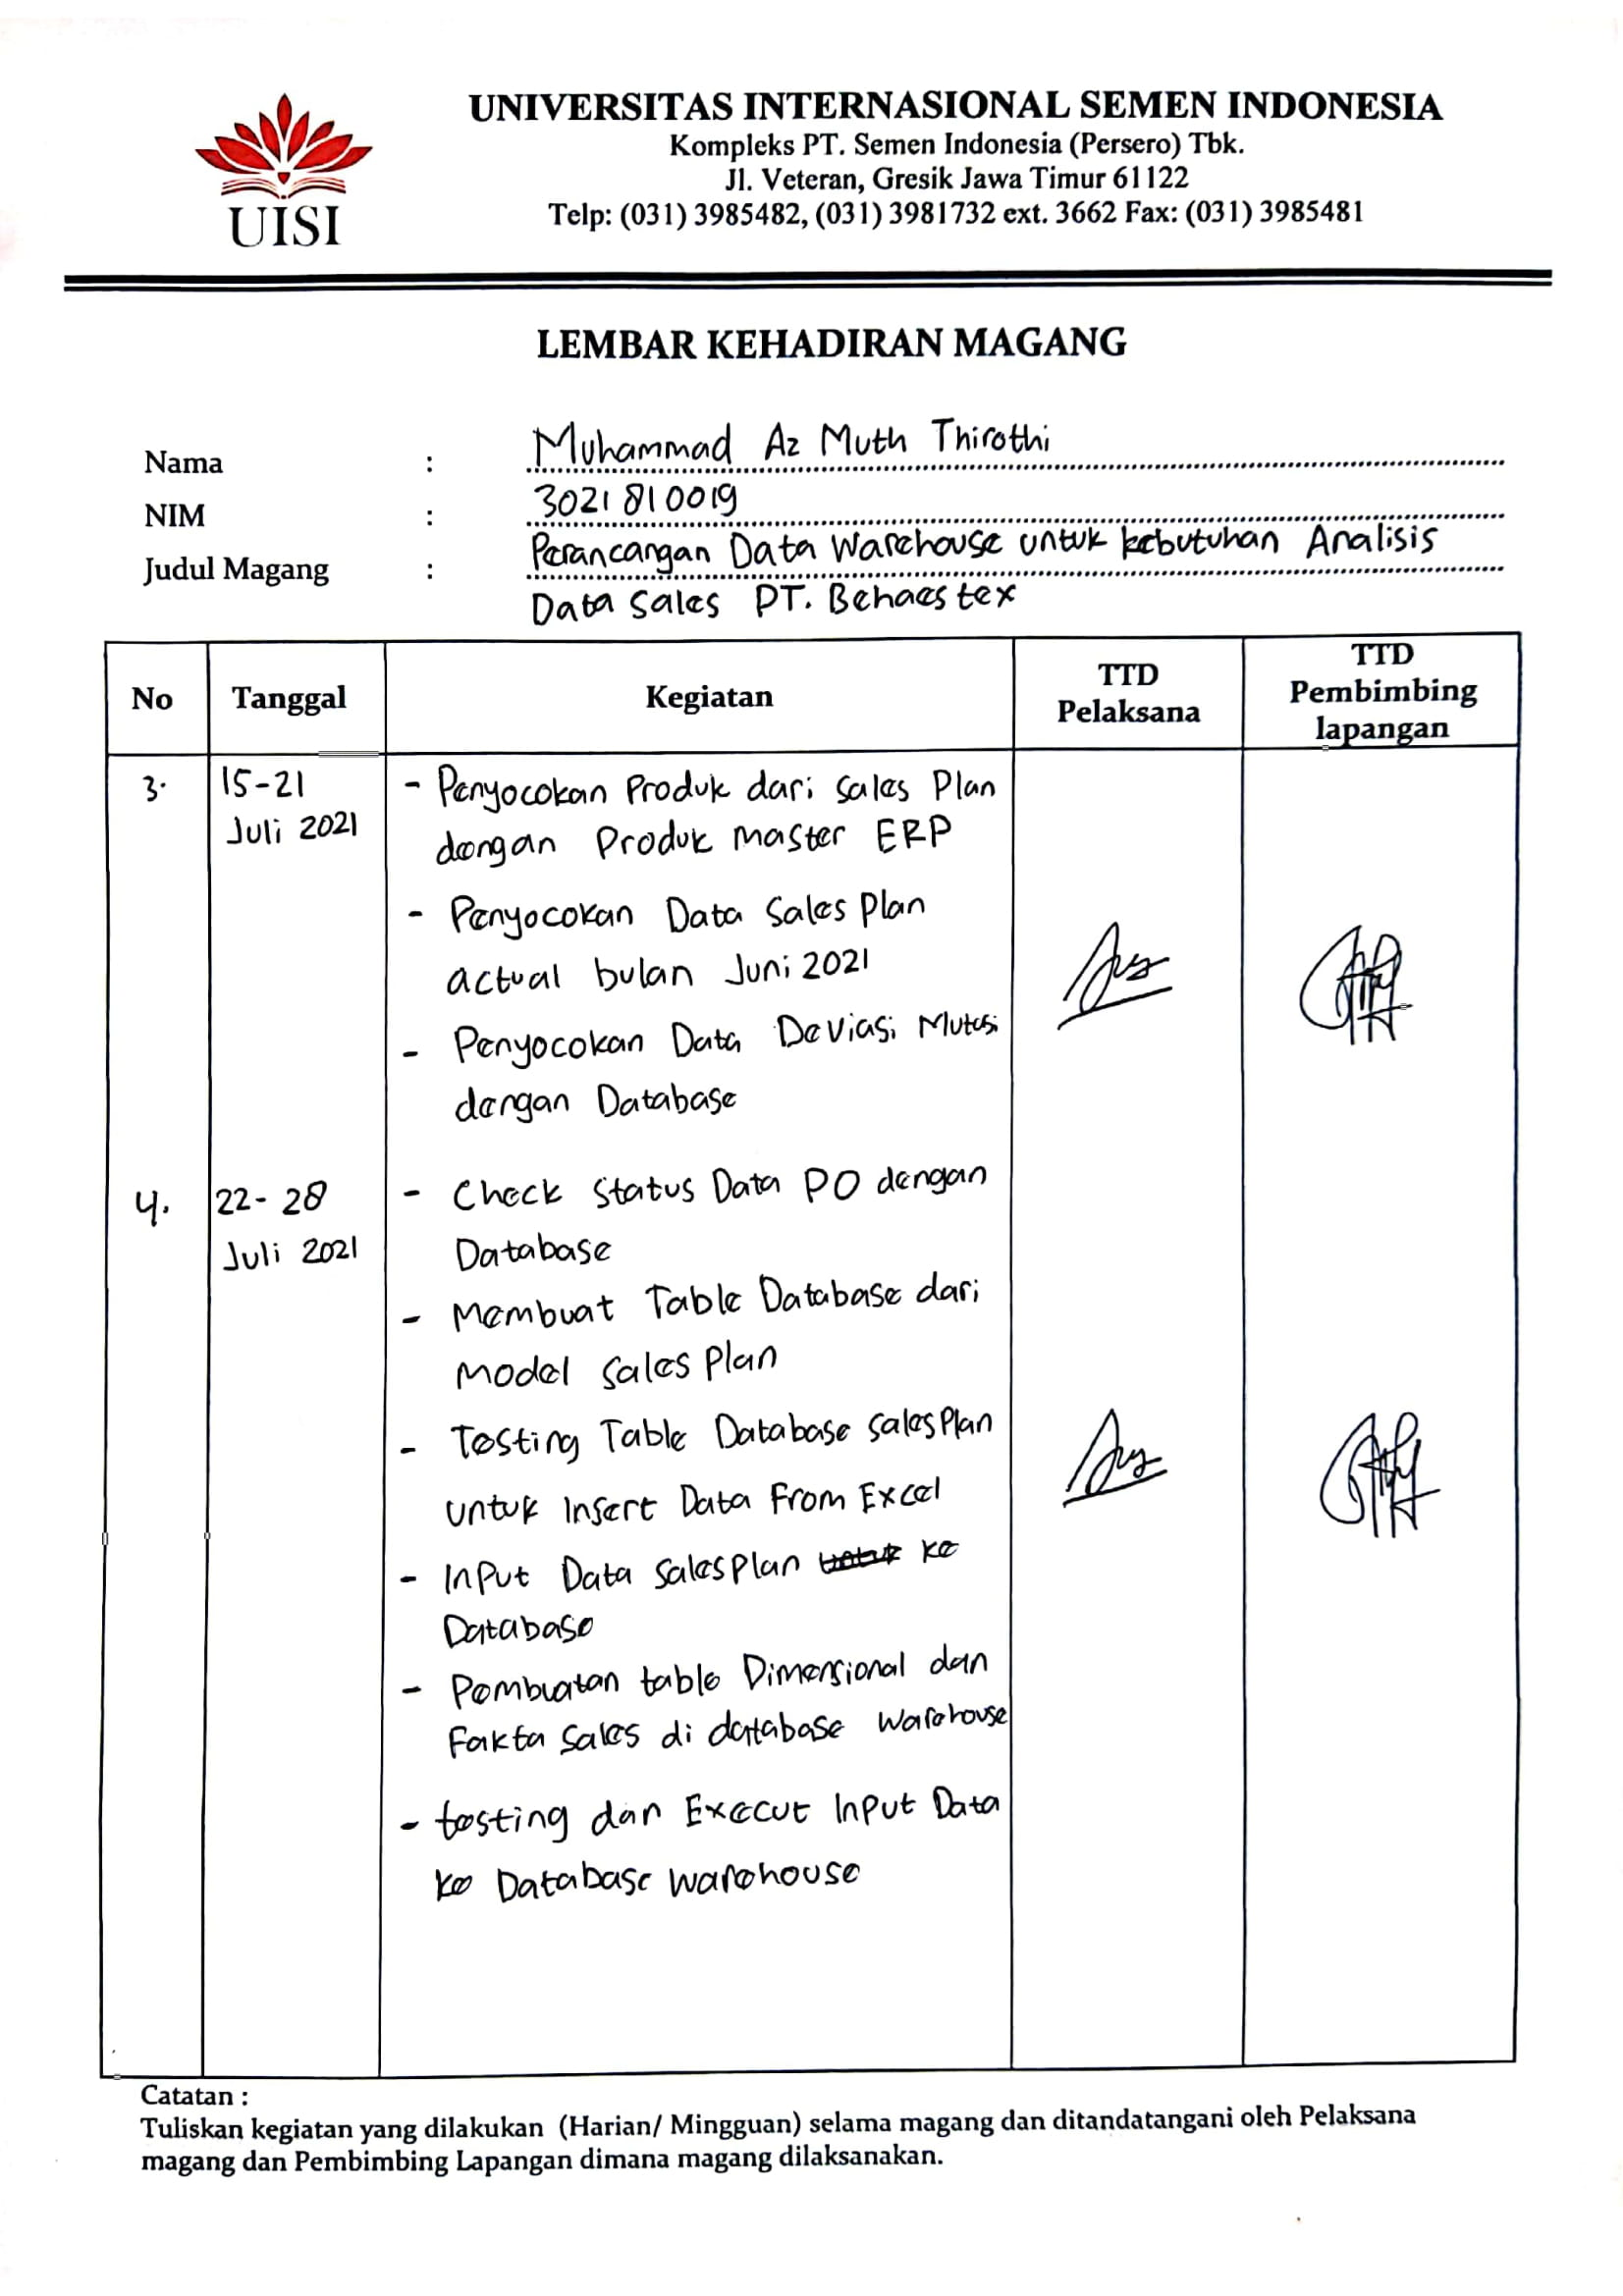 UISI
UNIVERSITAS INTERNASIONAL SEMEN INDONESIA
Kompleks PT. Semen Indonesia (Persero) Tbk.
Jl. Veteran, Gresik Jawa Timur 61122
Telp: (031) 3985482, (031) 3981732 ext. 3662 Fax: (031) 3985481
LEMBAR KEHADIRAN MAGANG
Nama : Muhammad Az Muth Thirothi
NIM : 3021810019
Judul Magang : Perancangan Data Warehouse untuk kebutuhan Analisis
Data Sales PT. Behaestex
No Tanggal Kegiatan TTD Pelaksana TTD Pembimbing lapangan
3. 15-21 Juli 2021
- Penyocokan Produk dari Sales Plan
dengan Produk Master ERP
- Penyocokan Data Sales Plan
actual bulan Juni 2021
- Penyocokan Data Deviasi Mutasi
dengan Database
4. 22-28 Juli 2021
- Check Status Data PO dengan
Database
- Membuat Table Database dari
Model Sales Plan
- Testing Table Database SalesPlan
untuk Insert Data From Excel
- Input Data SalesPlan untuk ke
Database
- Pembuatan table Dimensional dan
Fakta Sales di database Warehouse
- testing dan Execut Input Data
ke Database Warehouse
Catatan :
Tuliskan kegiatan yang dilakukan (Harian/ Mingguan) selama magang dan ditandatangani oleh Pelaksana
magang dan Pembimbing Lapangan dimana magang dilaksanakan.